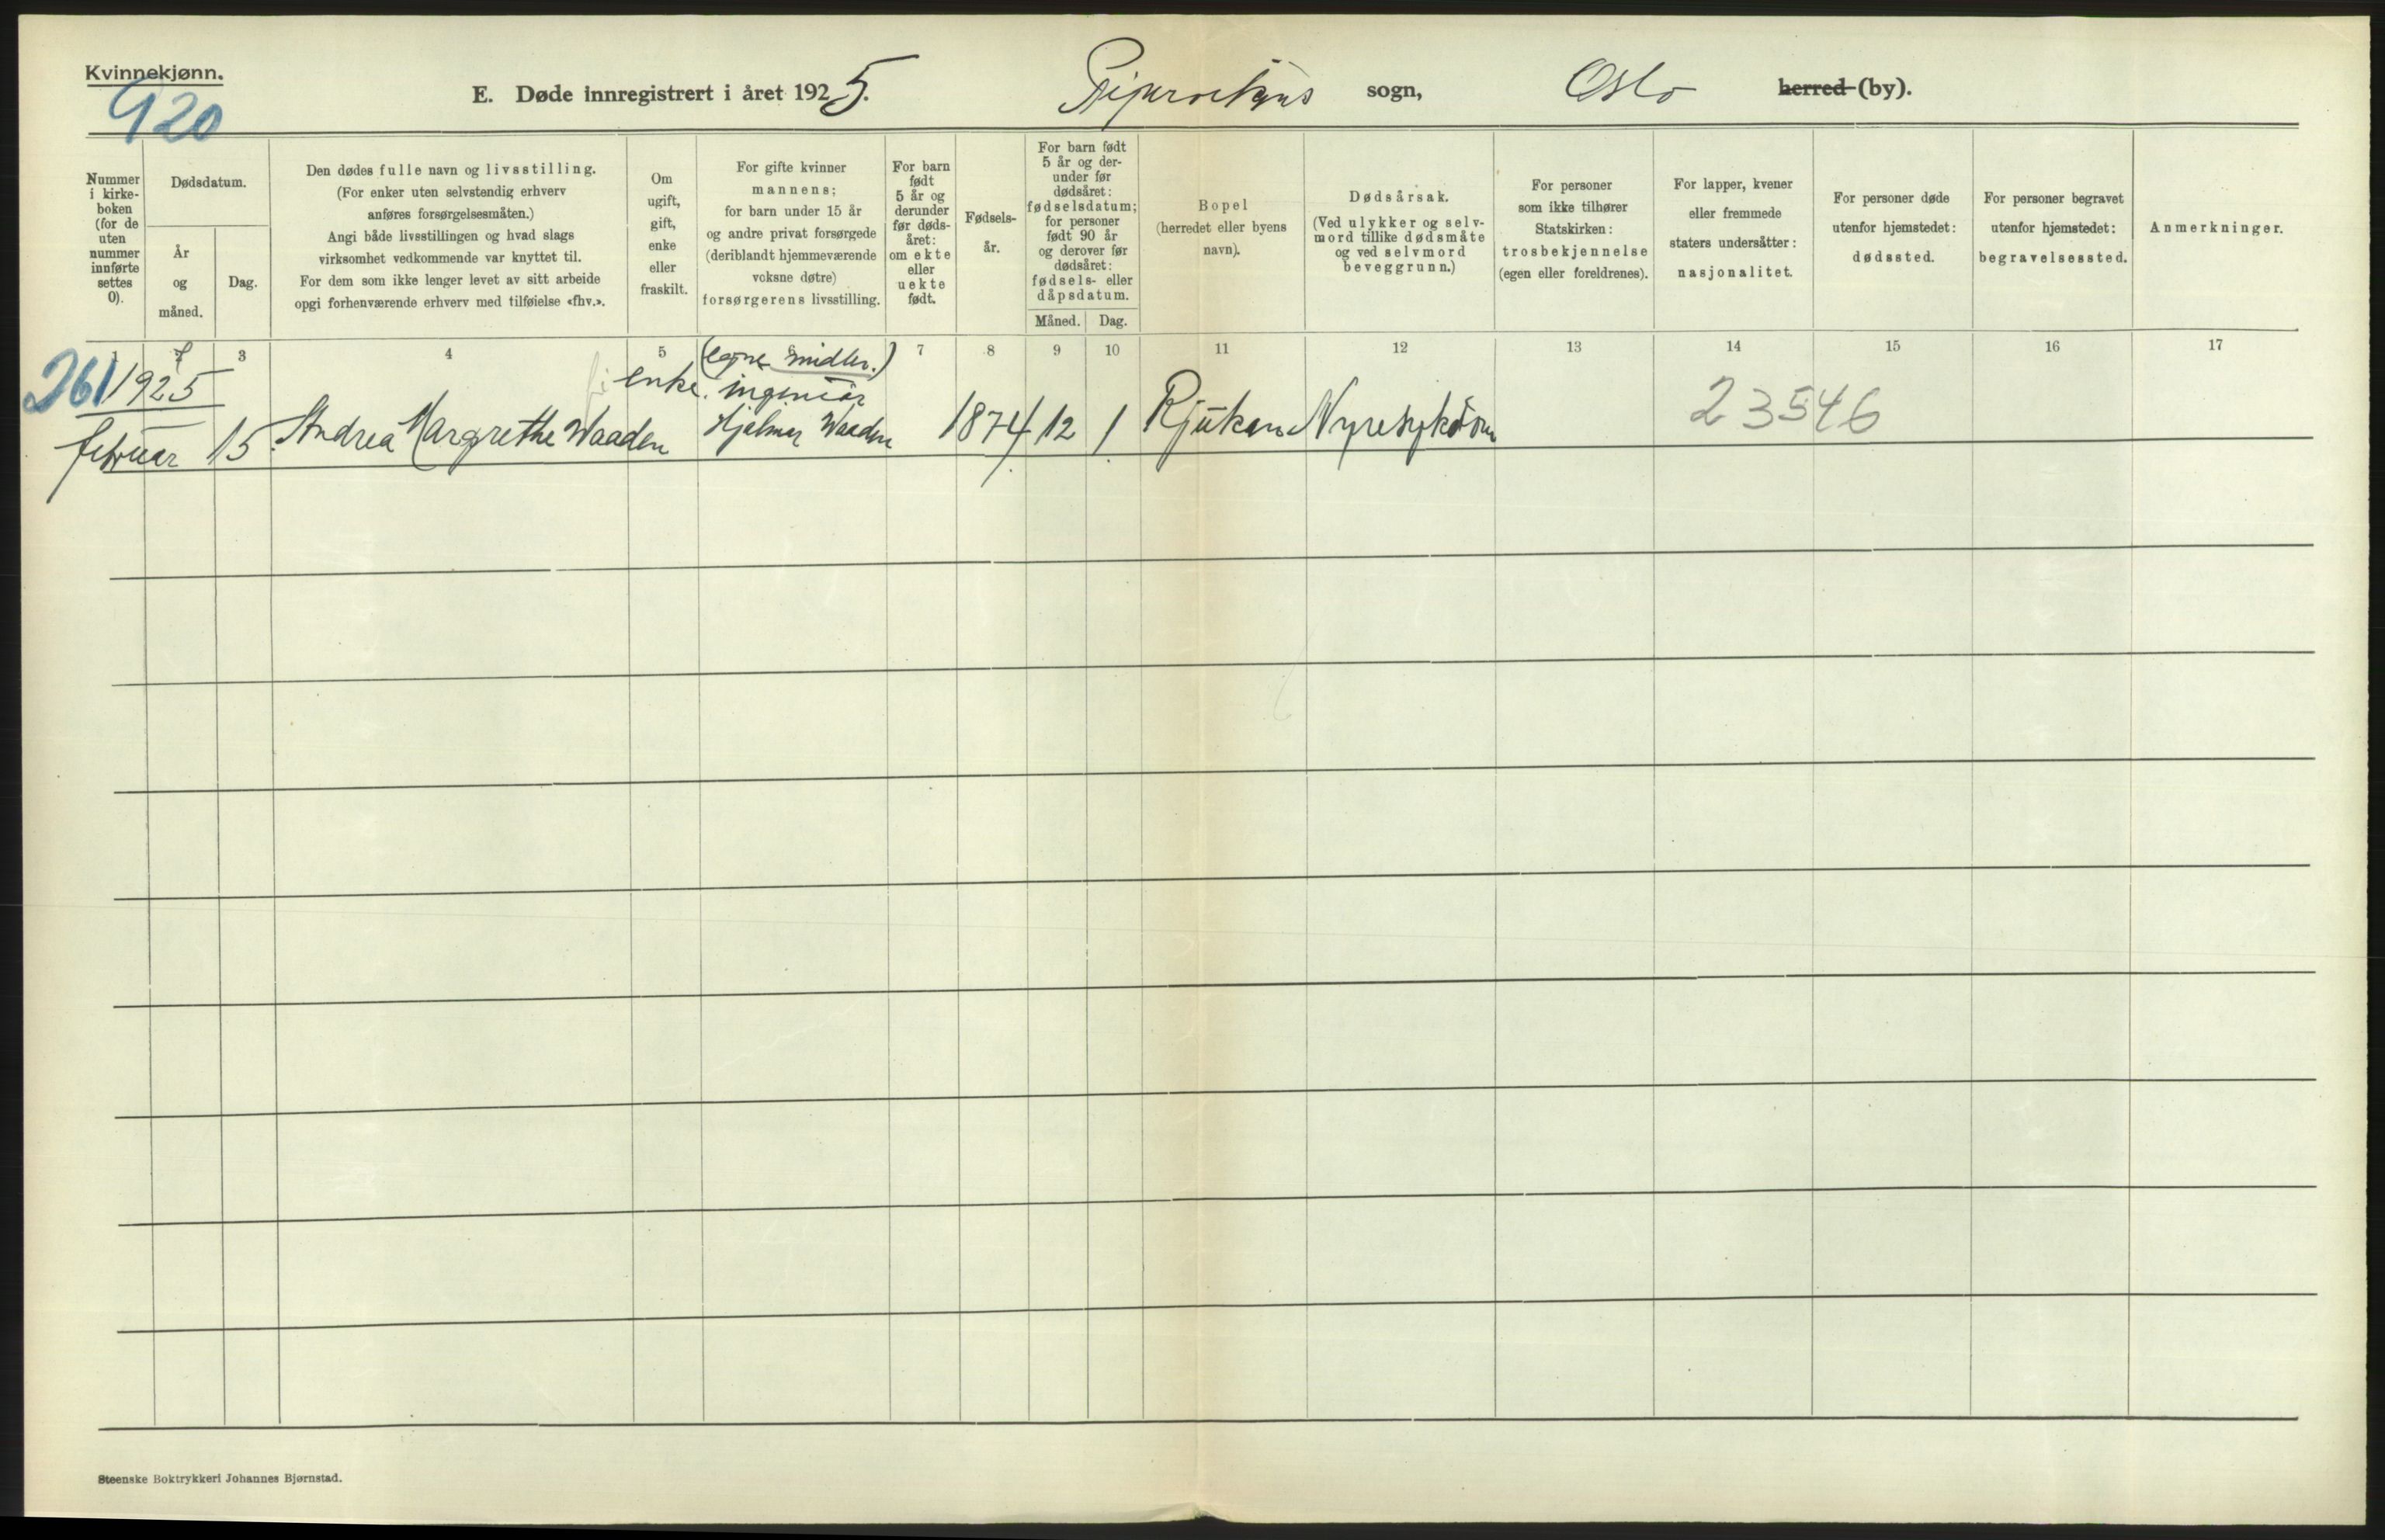 Kvinnekjønn.
920
E. Døde innregistrert i året 1925. sogn, Oslo herred (by).
Nummer
i kirke-
boken
(for de
uten
nummer
innførte
settes
0).
Dødsdatum.
År
og
måned.
Dag.
Den dødes fulle navn og livsstilling.
(For enker uten selvstendig erhverv
anføres forsørgelsesmåten.)
Angi både livsstillingen og hvad slags
virksomhet vedkommende var knyttet til.
For dem som ikke lenger levet av sitt arbeide
opgi forhenværende erhverv med tilføielse «fhv.».
Om
ugift,
gift,
enke
eller
fraskilt.
For gifte kvinner
mannens;
for barn under 15 år
og andre privat forsørgede
(deriblandt hjemmeværende
voksne døtre)
forsørgerens livsstilling.
For barn
født
5 år og
derunder
før døds-
året:
om ekte
eller
uekte
født.
Fødsels-
år.
For barn født
5 år og der-
under før
dødsåret:
fødselsdatum;
for personer
født 90 år
og derover før
dødsåret:
fødsels- eller
dåpsdatum.
Måned. Dag.
Bopel
(herredet eller byens
navn).
Dødsårsak.
(Ved ulykker og selv-
mord tillike dødsmåte
og ved selvmord
beveggrunn.)
For personer
som ikke tilhører
Statskirken:
trosbekjennelse
(egen eller foreldrenes).
For lapper, kvener
eller fremmede
staters undersåtter:
nasjonalitet.
For personer døde
utenfor hjemstedet:
dødssted.
For personer begravet
utenfor hjemstedet:
begravelsessted.
Anmerkninger.
3 4 5 7 8 9 10 11 12 13 14 15 16 17
261 1925
februar 15. Andrea Margrethe Waaden
enke.
(egne midler.)
ingeniør
Hjalmar Waaden
1874 12 1 Rjukan Nyresykdom
23546
Steenske Boktrykkeri Johannes Bjørnstad.